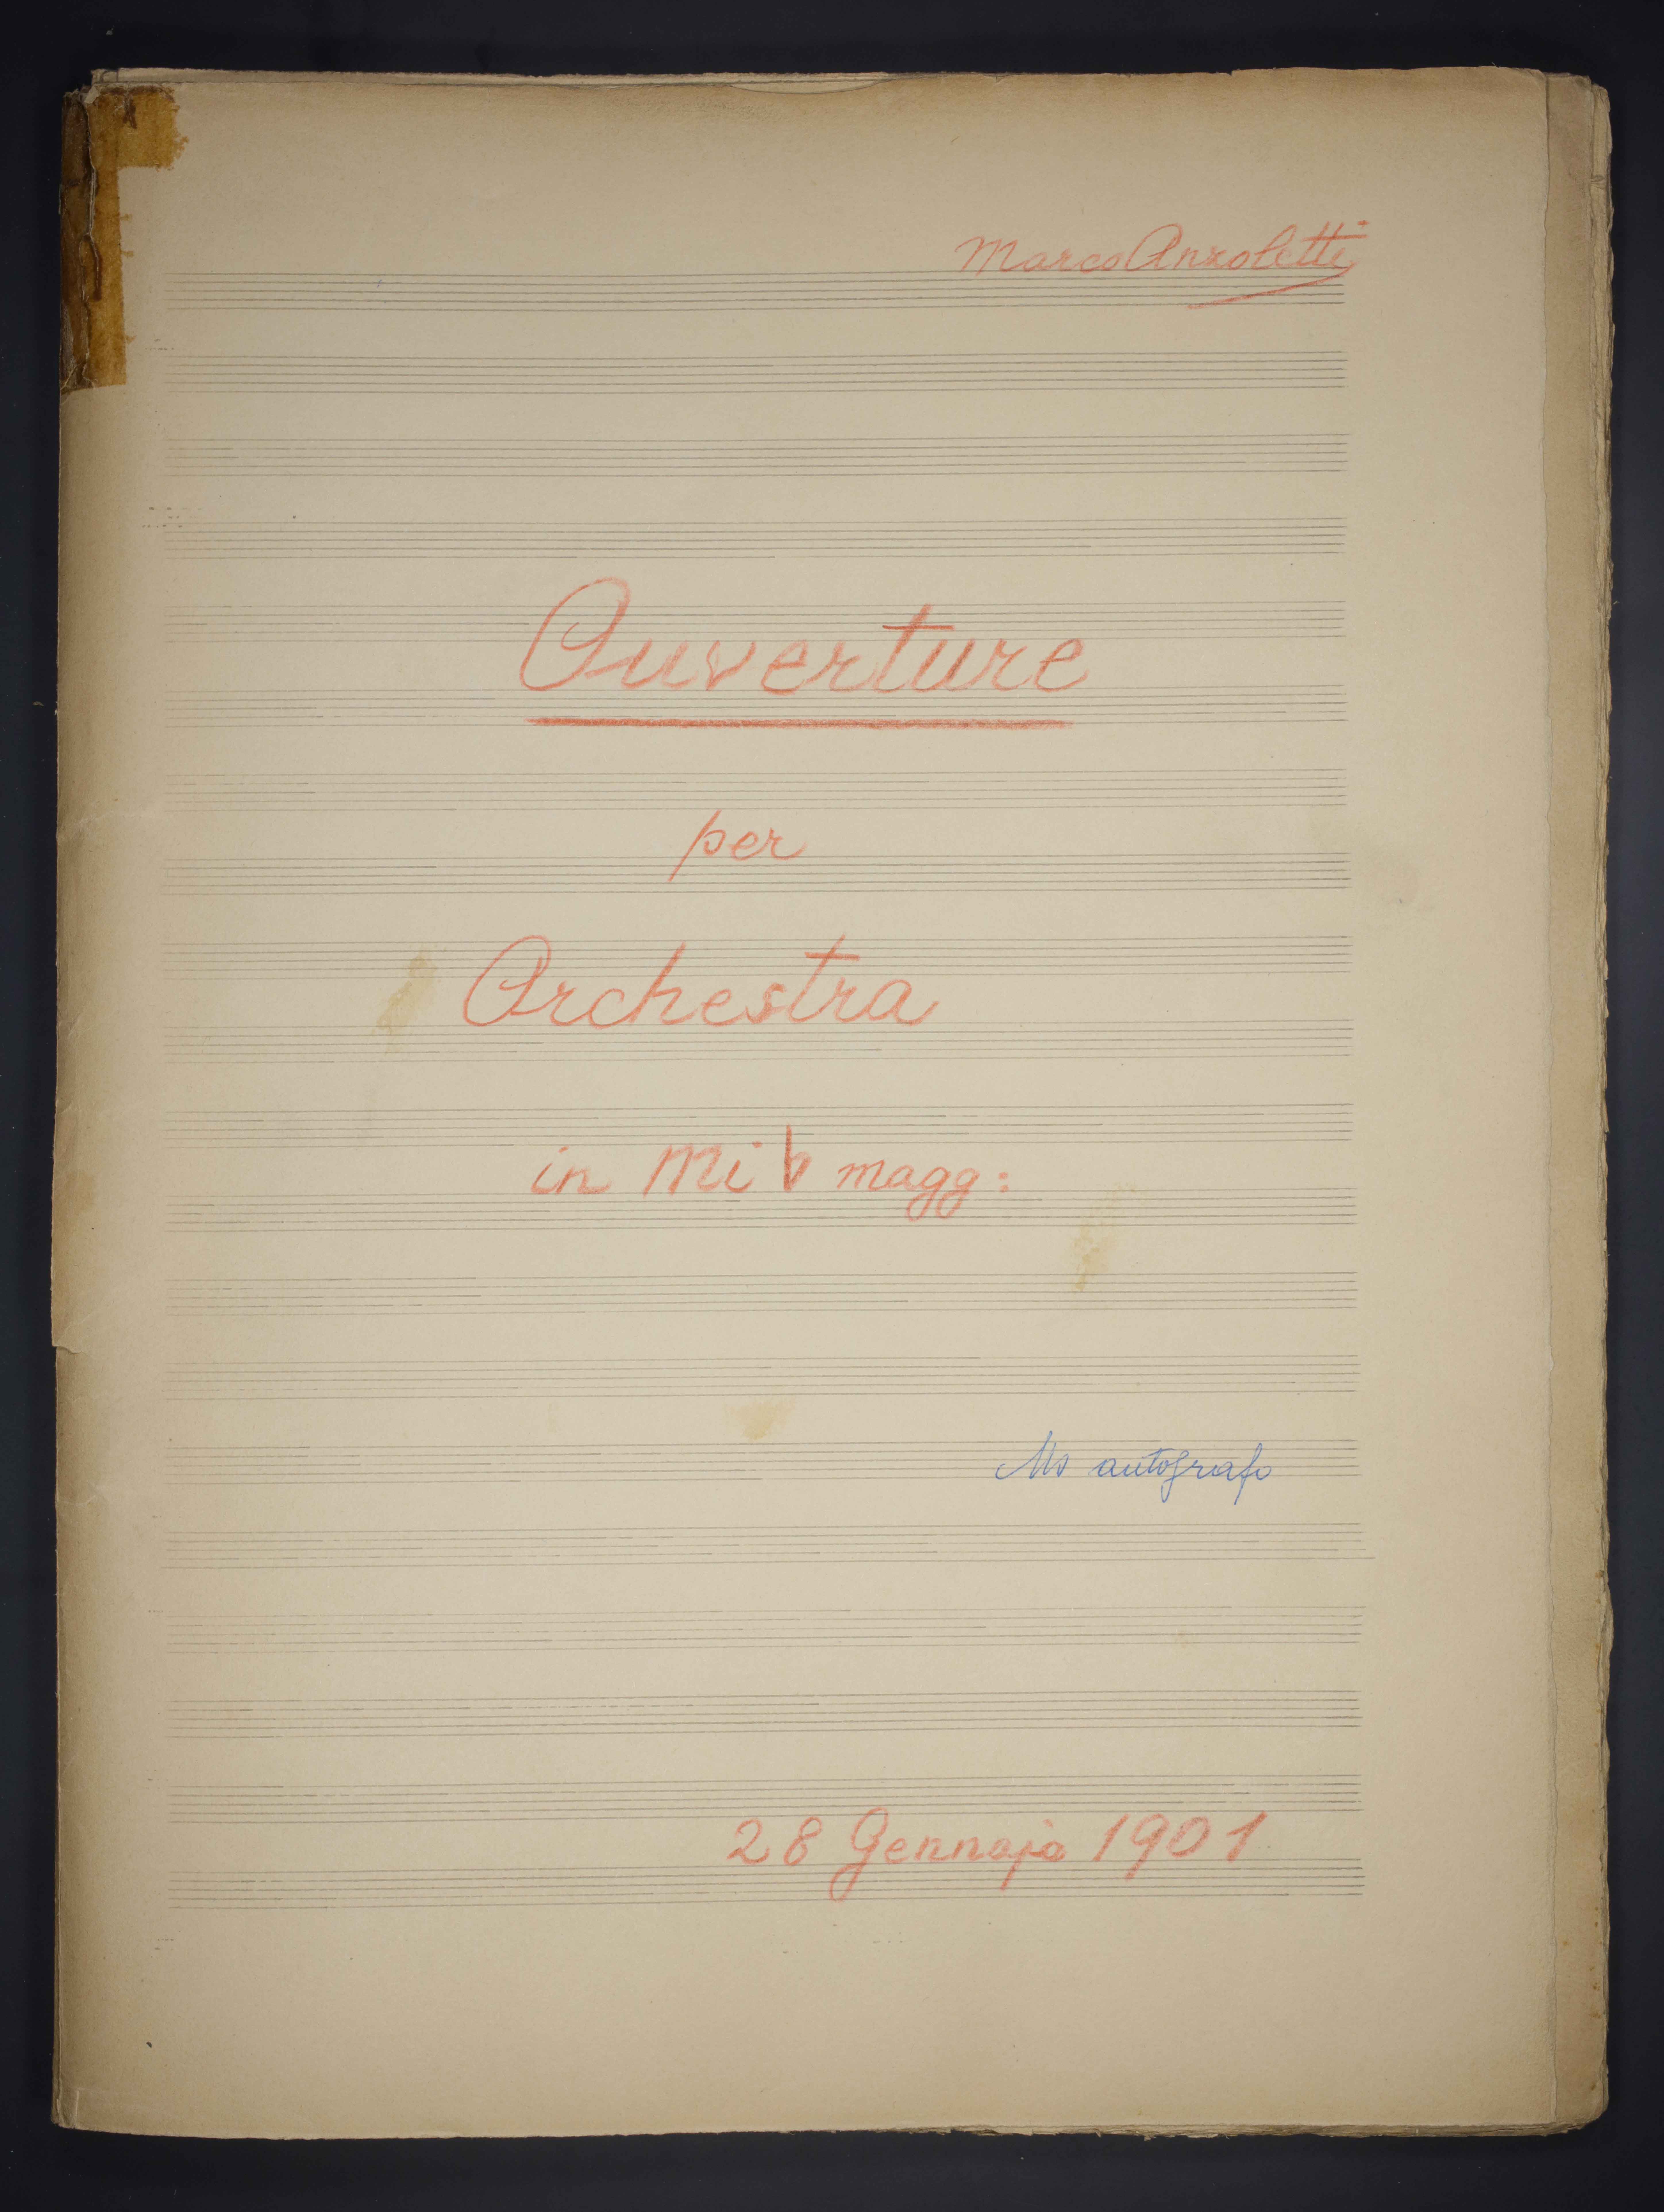 Marco Anzoletti
Ouverture
per
Orchestra
in Mi b magg:
Ms autografo
28 Gennajo 1901